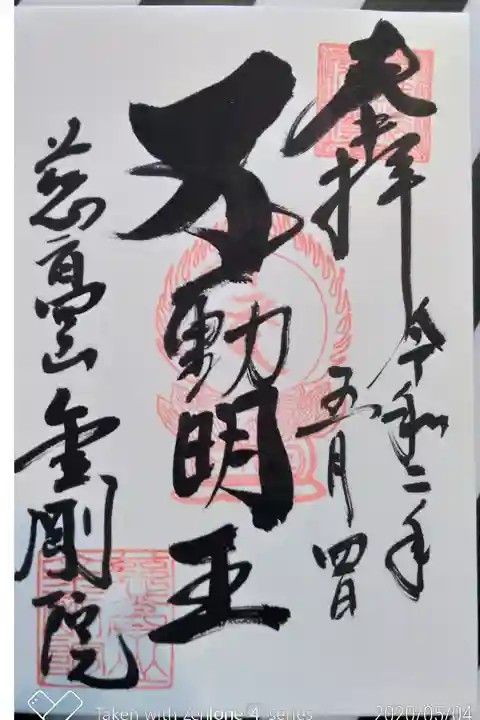 奉拝
令和二年
五月四日
不動明王
慈高山 金剛院
Taken with Zenfone 4 series
2020/05/04